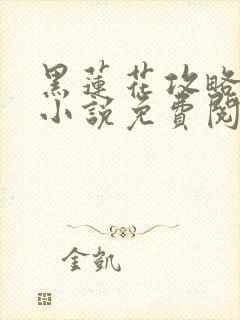 黑蓮花攻略
小說免費閱
金凱